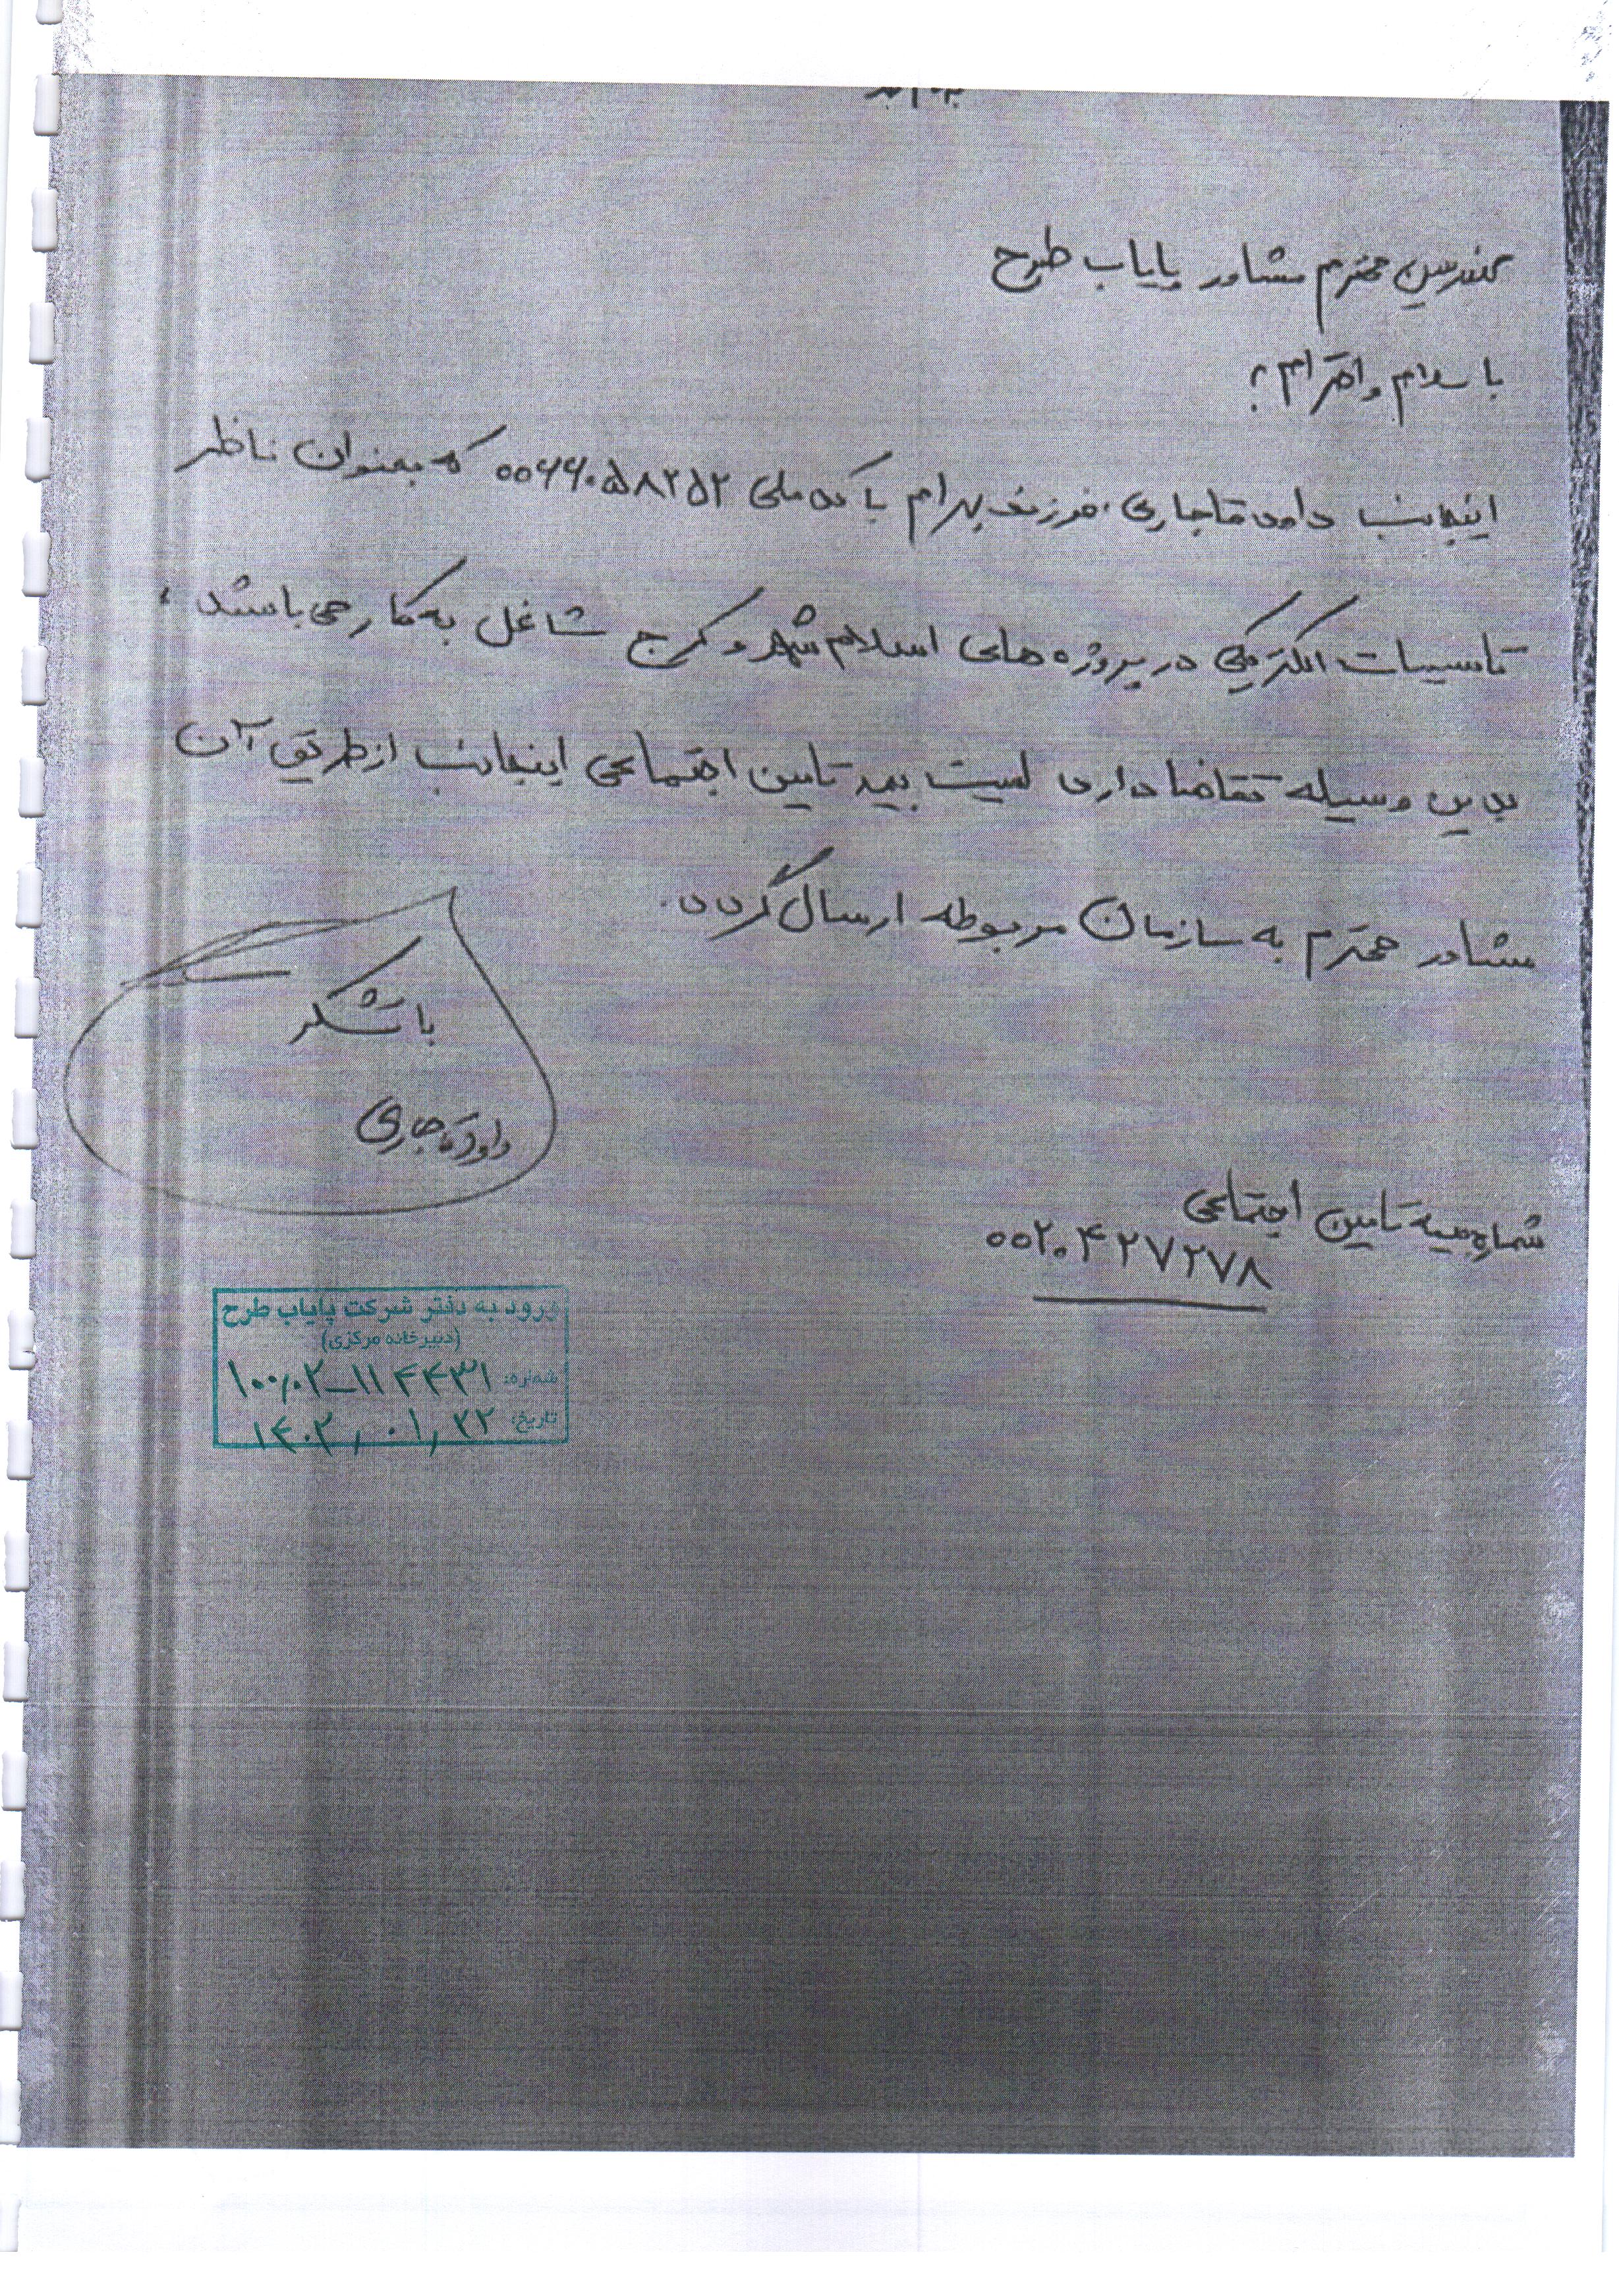 مهندسین محترم مشاور پایاب طرح
با سلام و احترام ؛
اینجانب داود قاجاری ، فرزند بهرام با کد ملی ۰۰۶۶۰۵۸۲۵۲ که بعنوان ناظر
تاسیسات الکتریکی در پروژه های اسلام شهر و کرج شاغل به کار می باشد ،
بدین وسیله تقاضا دارد لیست بیمه تامین اجتماعی اینجانب از طریق آن
مشاور محترم به سازمان مربوطه ارسال گردد.
با تشکر
داود قاجاری
شماره بیمه تامین اجتماعی
۰۰۲۰۴۲۷۲۷۸
ورود به دفتر شرکت پایاب طرح
(دبیرخانه مرکزی)
شماره: ۱۰۰٫۰۲-۱۱۴۴۳۱
تاریخ: ۱۴۰۲٫۰۱٫۲۲